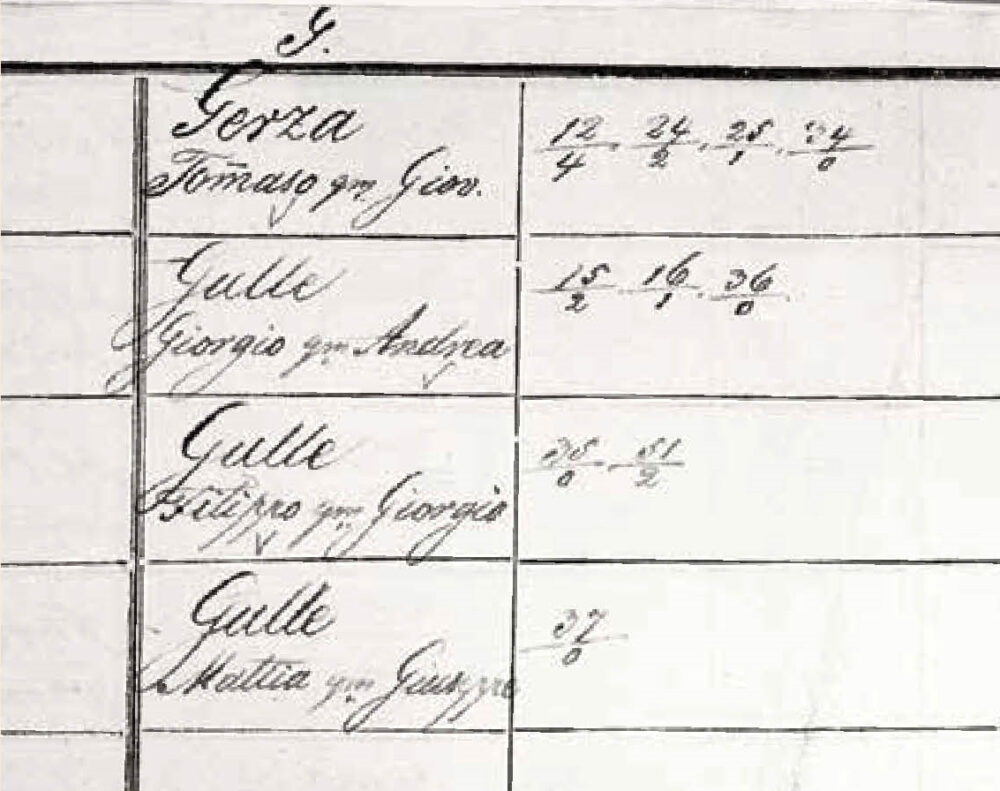 G.
Gerza
Tom̄aso qm Giov.
12/4 . 24/2 . 25/1 . 34/0
Gulle
Giorgio qm Andrea
15/2 . 16/1 . 36/0
Gulle
Filippo qm Giorgio
35/0 . 51/2
Gulle
Mattia qm Giuseppe
37/0